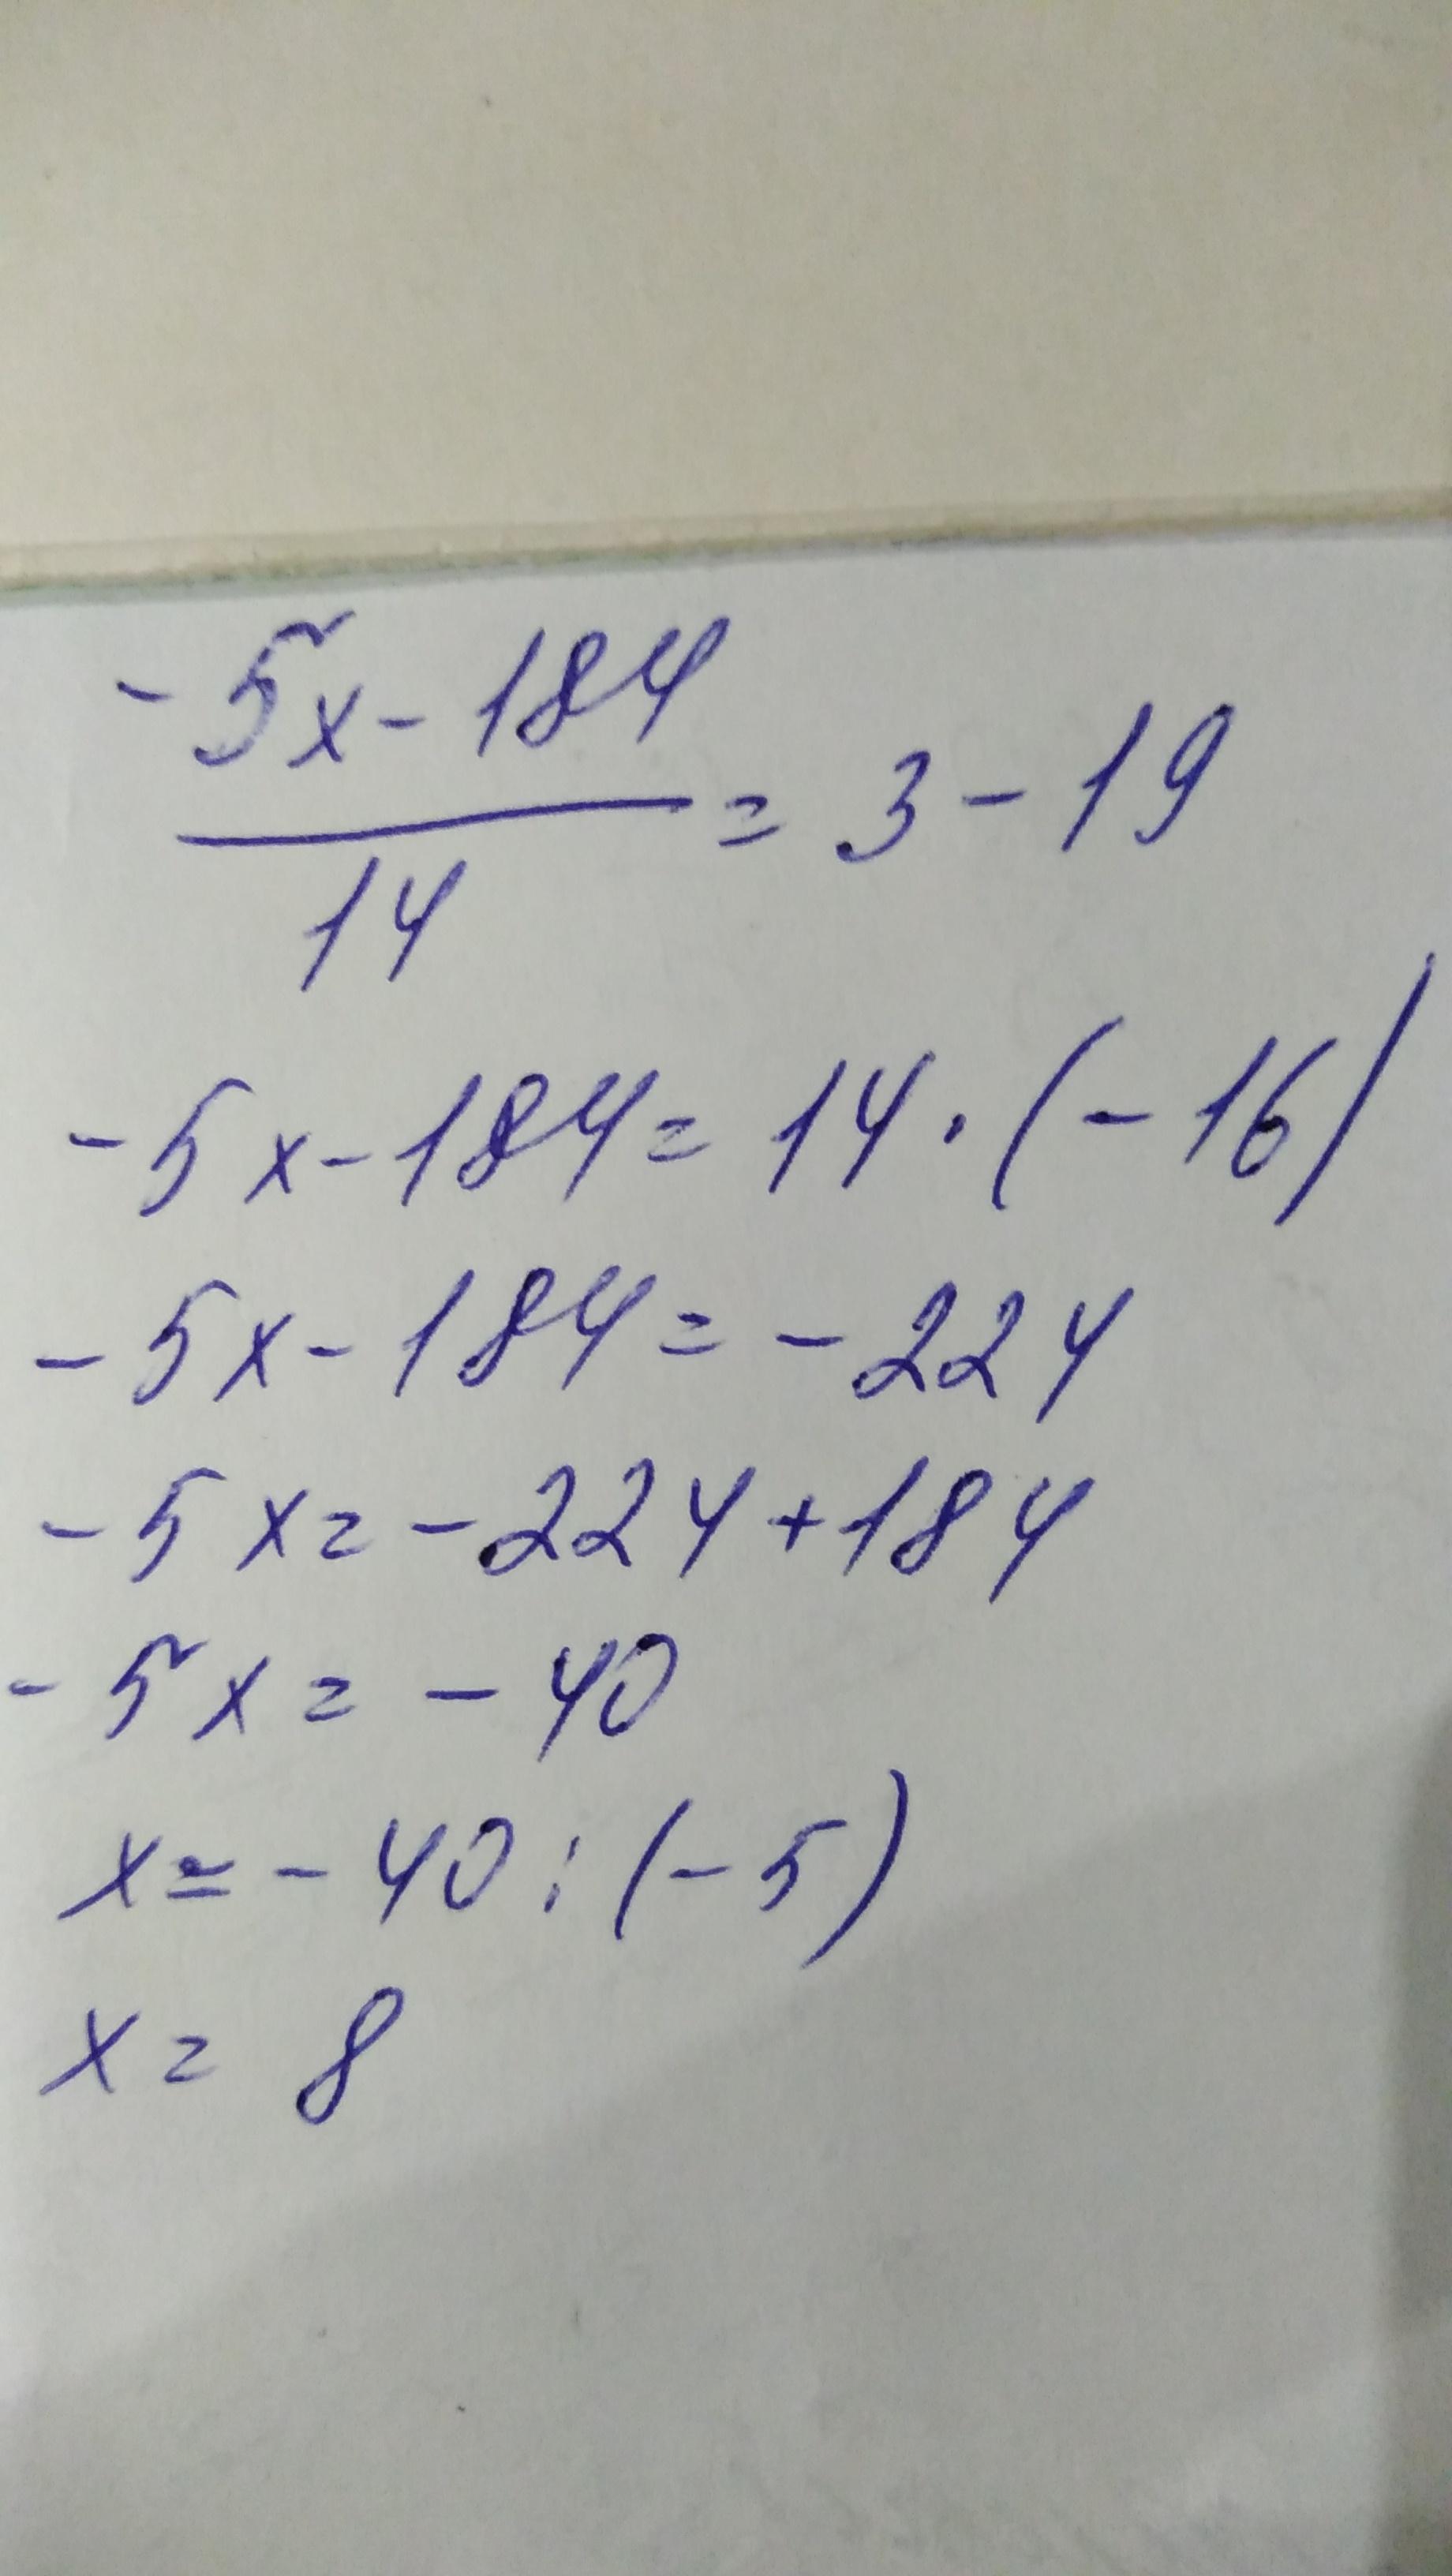 -5x-184
/14 = 3-19
-5x-184=14·(-16)
-5x-184=-224
-5x=-224+184
-5x=-40
x=-40:(-5)
x=8